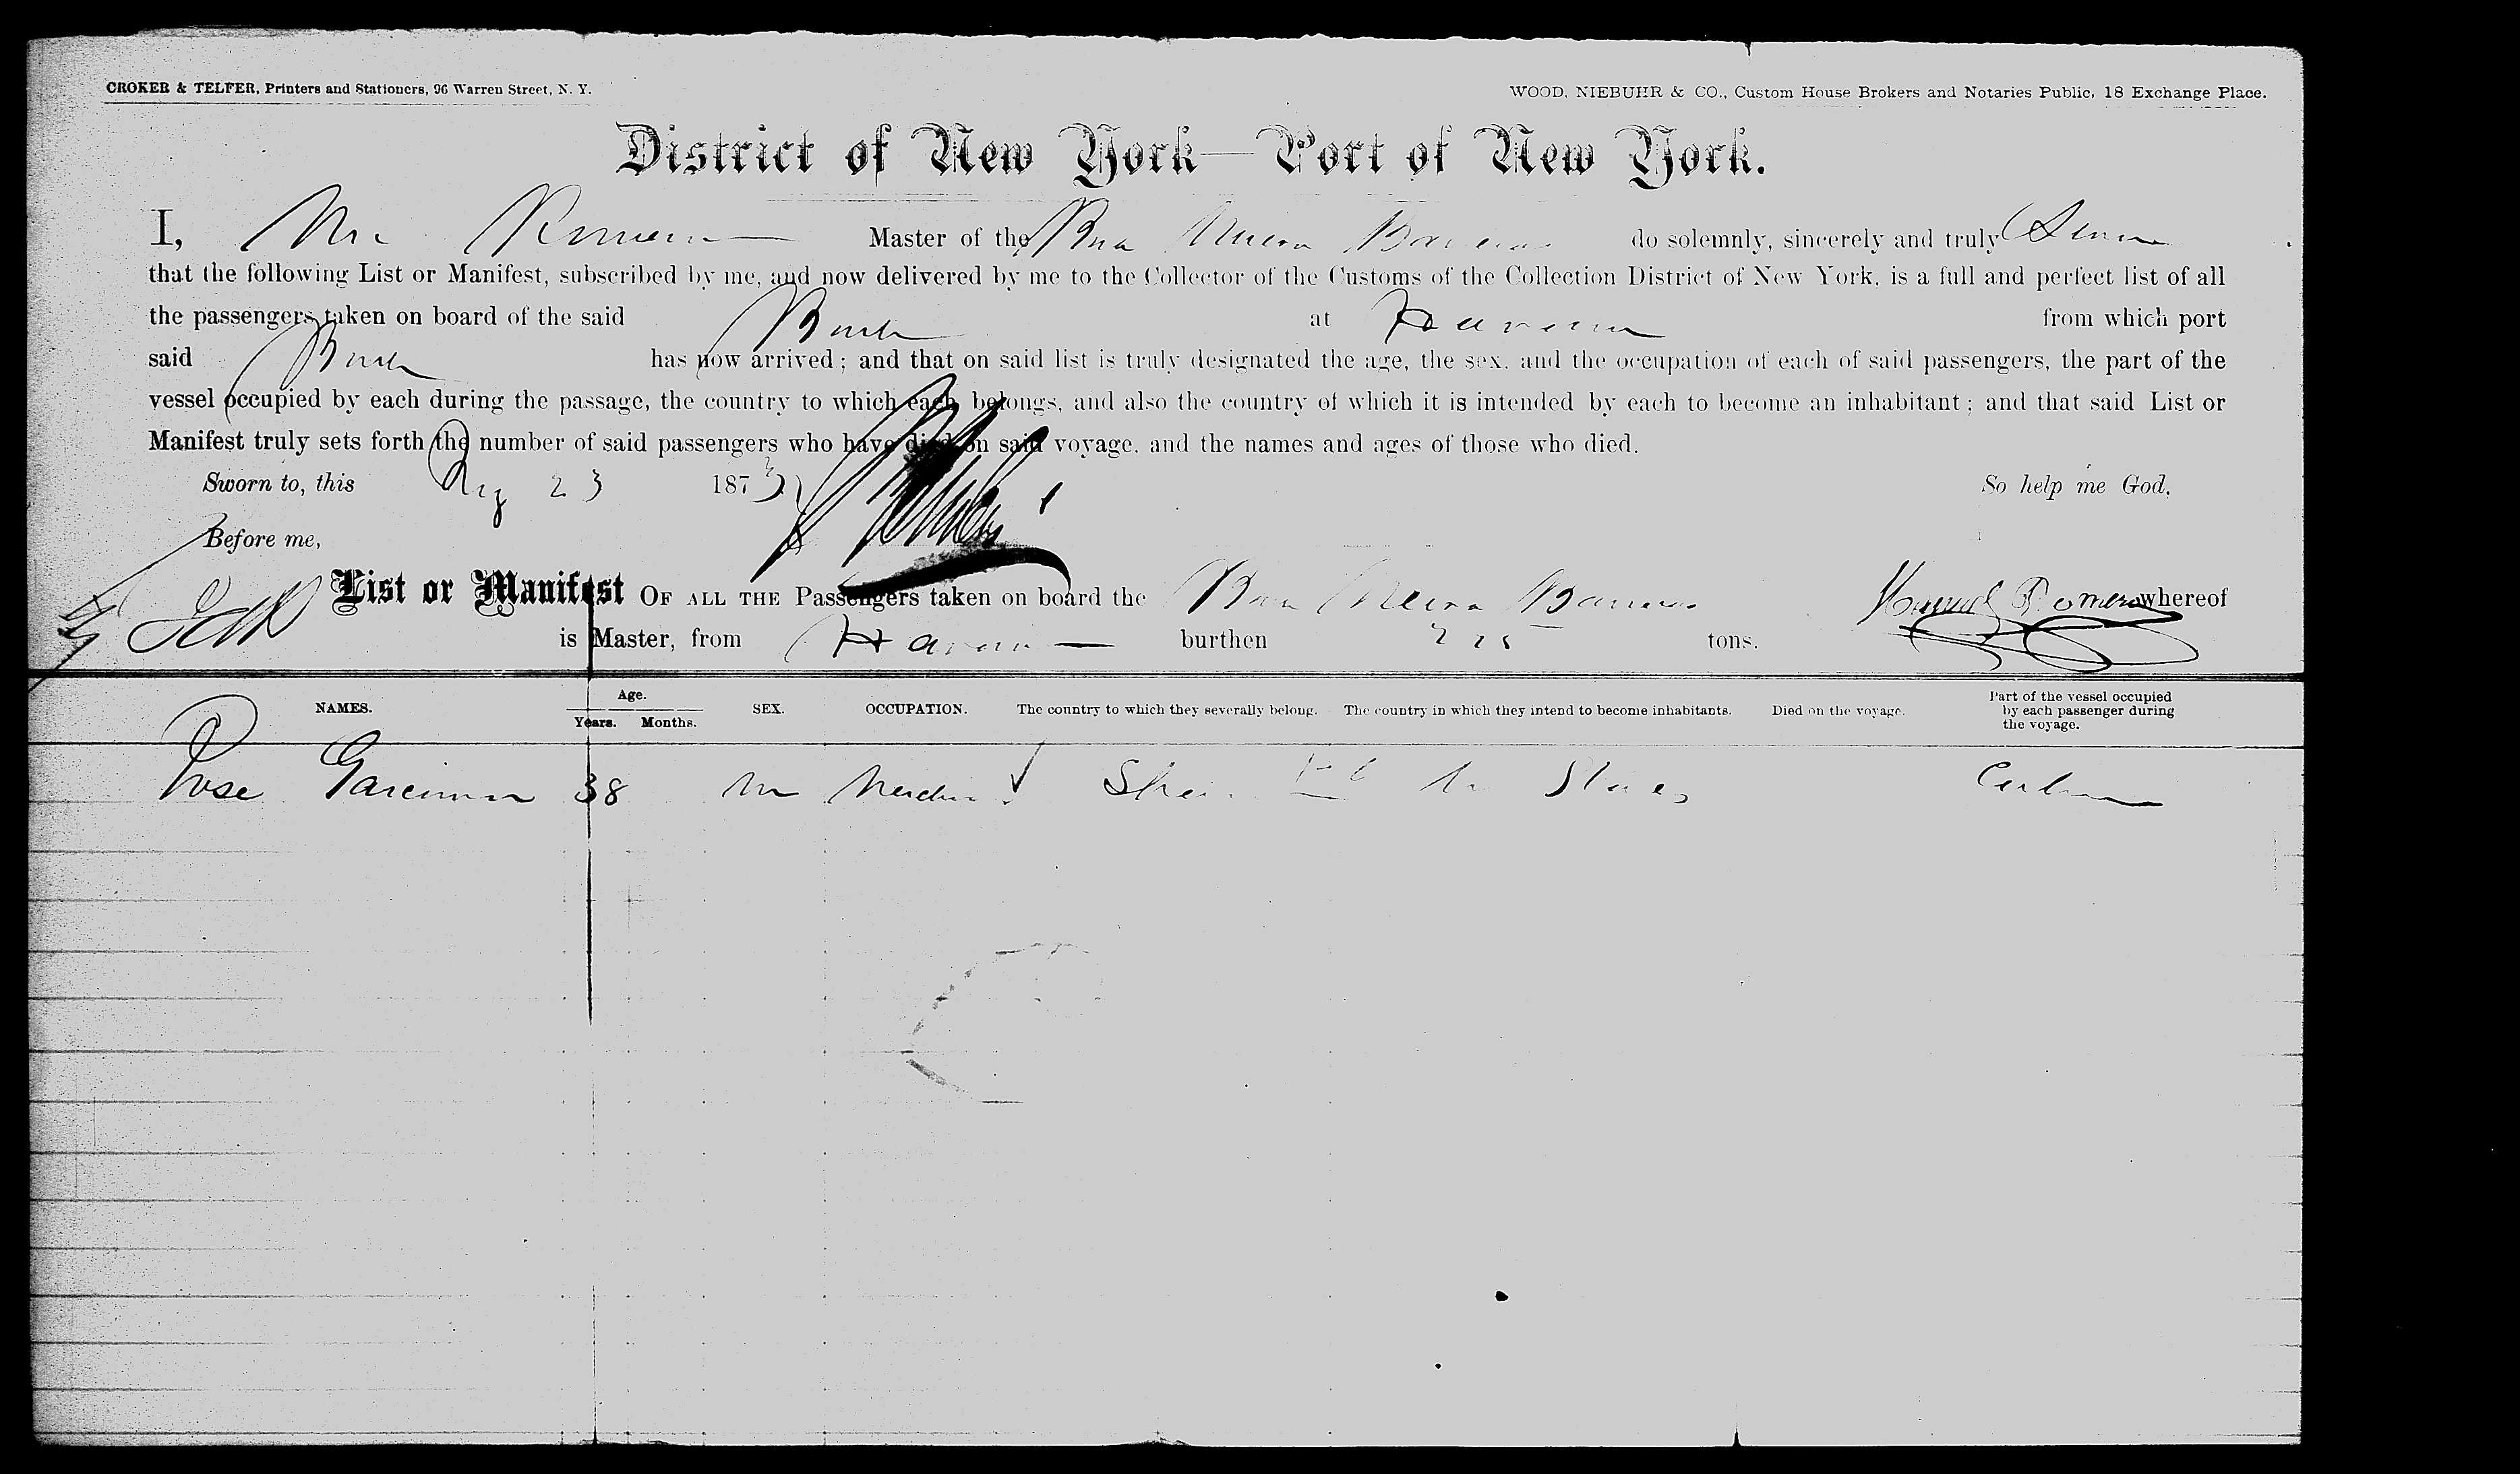 CROKER & TELFER, Printers and Stationers, 96 Warren Street, N. Y.
WOOD, NIEBUHR & CO., Custom House Brokers and Notaries Public, 18 Exchange Place.
District of New York—Port of New York.
I, Romero Master of the do solemnly, sincerely and truly Swear
that the following List or Manifest, subscribed by me, and now delivered by me to the Collector of the Customs of the Collection District of New York, is a full and perfect list of all
the passengers taken on board of the said Bark at Havana from which port
said Bark has now arrived; and that on said list is truly designated the age, the sex, and the occupation of each of said passengers, the part of the
vessel occupied by each during the passage, the country to which each belongs, and also the country of which it is intended by each to become an inhabitant; and that said List or
Manifest truly sets forth the number of said passengers who have died on said voyage, and the names and ages of those who died.
Sworn to, this Aug 23 1873 So help me God.
Before me,
List or Manifest OF ALL THE Passengers taken on board the Manuel Romero whereof
is Master, from Havana burthen tons.
NAMES. Age. Years. Months. SEX. OCCUPATION. The country to which they severally belong. The country in which they intend to become inhabitants. Died on the voyage. Part of the vessel occupied by each passenger during the voyage.
Jose 38 m Spain States Cabin